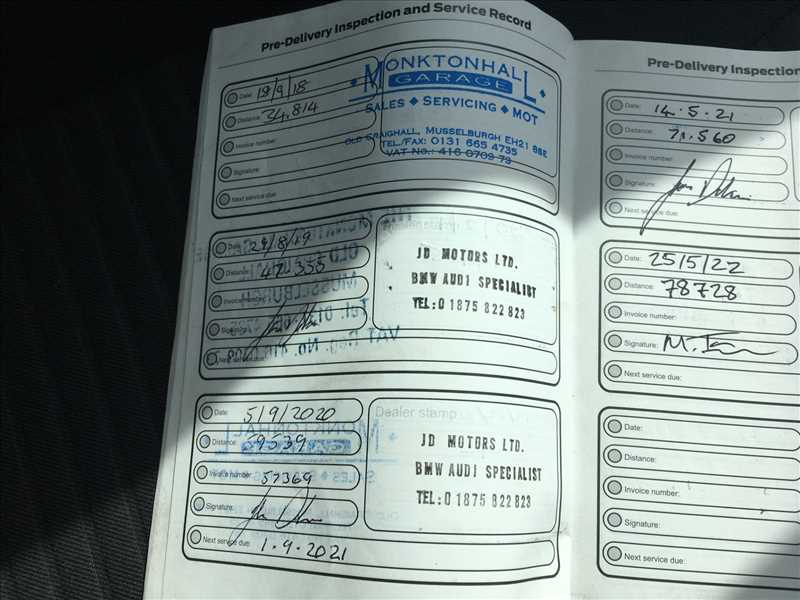 Pre-Delivery Inspection and Service Record
Date: 18/9/18
Distance: 34,814
Invoice number:
Signature:
Next service due:
MONKTONHALL
GARAGE
SALES ◆ SERVICING ◆ MOT
OLD CRAIGHALL, MUSSELBURGH EH21 8SE
TEL./FAX: 0131 665 4735
VAT No.: 416 0709 73
Date: 29/8/19
Distance: 47,355
Invoice number:
Signature:
Next service due:
JD MOTORS LTD.
BMW AUDI SPECIALIST
TEL: 01875 822 823
Date: 5/9/2020
Distance: 59539
Invoice number: 57369
Signature:
Next service due: 1.9.2021
Dealer stamp
JD MOTORS LTD.
BMW AUDI SPECIALIST
TEL: 01875 822 823
Pre-Delivery Inspection
Date: 14.5.21
Distance: 71,560
Invoice number:
Signature:
Next service due:
Date: 25/5/22
Distance: 78728
Invoice number:
Signature:
Next service due:
Date:
Distance:
Invoice number:
Signature:
Next service due: